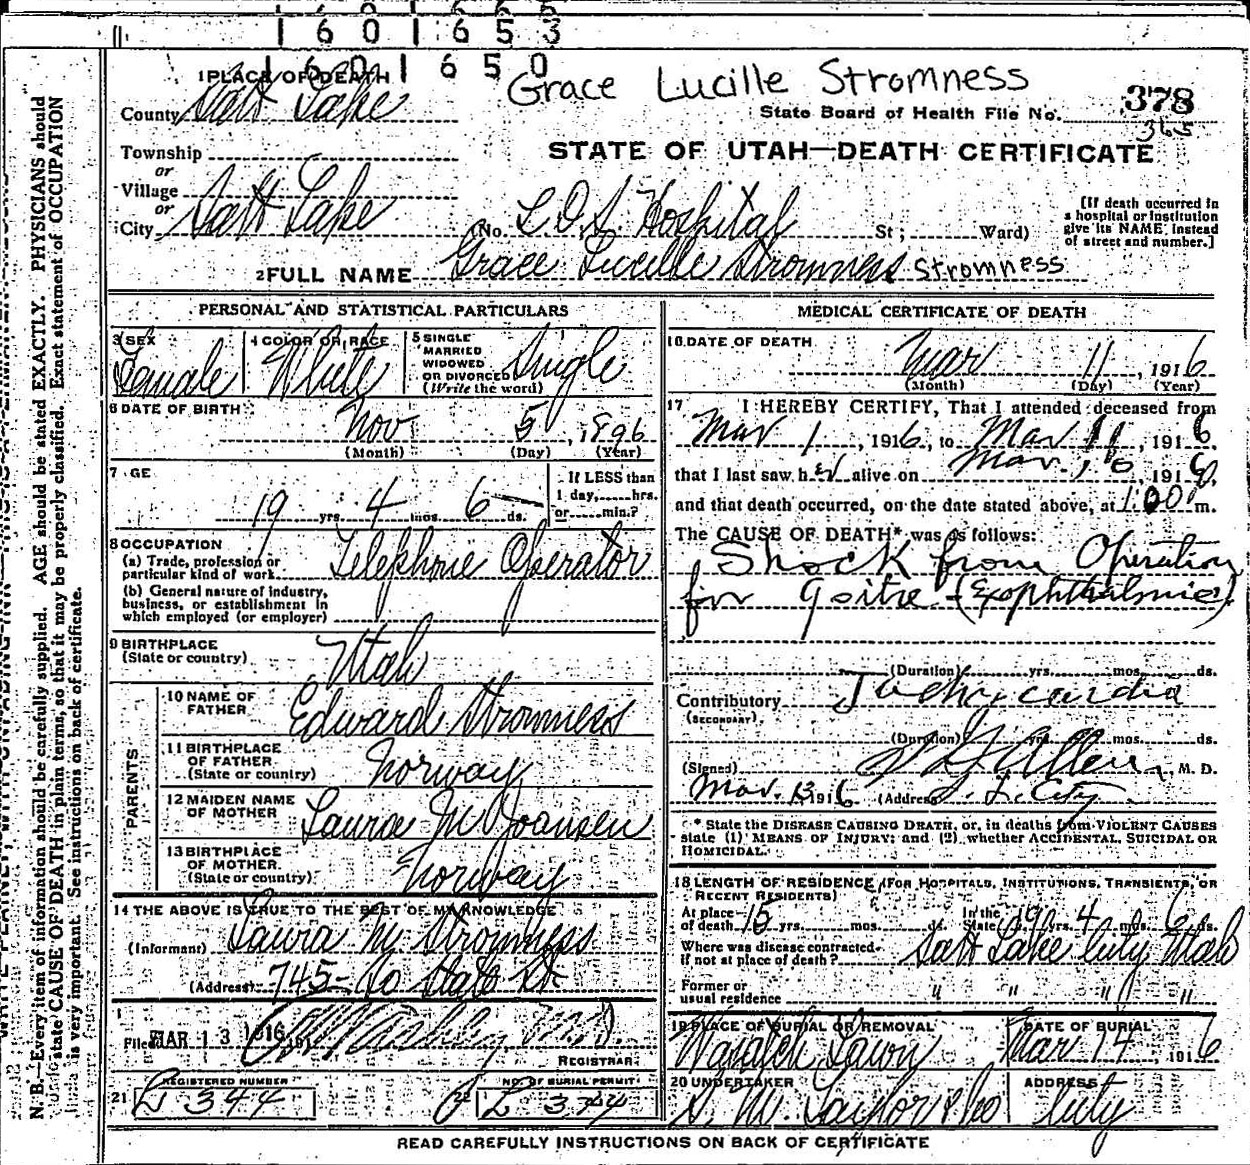 1 6 0 1 6 5 3
1 6 0 1 6 5 0
Grace Lucille Stromness
1 PLACE OF DEATH
County Salt Lake
State Board of Health File No. 378
365
Township
or
Village
or
City Salt Lake
STATE OF UTAH—DEATH CERTIFICATE
(No. L.D.S. Hospital St; Ward)
[If death occurred in
a hospital or institution
give its NAME instead
of street and number.]
2 FULL NAME Grace Lucille Stromness Stromness
PERSONAL AND STATISTICAL PARTICULARS
3 SEX Female
4 COLOR OR RACE White
5 SINGLE
MARRIED
WIDOWED
OR DIVORCED
(Write the word) Single
6 DATE OF BIRTH
Nov 5, 1896
(Month) (Day) (Year)
7 GE
19 yrs 4 mos 6 ds.
If LESS than
1 day, hrs.
or min.?
8 OCCUPATION
(a) Trade, profession or
particular kind of work Telephone Operator
(b) General nature of industry,
business, or establishment in
which employed (or employer)
9 BIRTHPLACE
(State or country) Utah
PARENTS
10 NAME OF
FATHER Edward Stromness
11 BIRTHPLACE
OF FATHER
(State or country) Norway
12 MAIDEN NAME
OF MOTHER Laura M Joansen
13 BIRTHPLACE
OF MOTHER
(State or country) Norway
14 THE ABOVE IS TRUE TO THE BEST OF MY KNOWLEDGE
(Informant) Laura M. Stromness
(Address) 745 So State St
Filed MAR 13 1916 M.D.
REGISTRAR
21 REGISTERED NUMBER
L 344
22 NO. OF BURIAL PERMIT
L 344
MEDICAL CERTIFICATE OF DEATH
16 DATE OF DEATH
Mar 11, 1916
(Month) (Day) (Year)
17 I HEREBY CERTIFY, That I attended deceased from
Mar 1, 1916, to Mar 11, 1916
that I last saw her alive on Mar. 10, 1916
and that death occurred, on the date stated above, at 1:00 m.
The CAUSE OF DEATH* was as follows:
Shock from Operation
for Goitre - (Exophthalmic)
(Duration) yrs. mos. ds.
Contributory Tachycardia
(SECONDARY)
(Duration) yrs. mos. ds.
(Signed) Allen, M. D.
Mar. 13 1916 (Address S. L. City
* State the DISEASE CAUSING DEATH, or, in deaths from VIOLENT CAUSES
state (1) MEANS OF INJURY; and (2) whether ACCIDENTAL, SUICIDAL OR
HOMICIDAL.
18 LENGTH OF RESIDENCE (FOR HOSPITALS, INSTITUTIONS, TRANSIENTS, OR
RECENT RESIDENTS)
At place
of death 15 yrs. mos. ds. In the
State 19 yrs. 4 mos. 6 ds.
Where was disease contracted
if not at place of death? Salt Lake City Utah
Former or
usual residence " " " "
19 PLACE OF BURIAL OR REMOVAL
Wasatch Lawn
DATE OF BURIAL
Mar 14, 1916
20 UNDERTAKER
S. M. Taylor & Co
ADDRESS
City
READ CAREFULLY INSTRUCTIONS ON BACK OF CERTIFICATE
N. B.—Every item of information should be carefully supplied. AGE should be stated EXACTLY. PHYSICIANS should
state CAUSE OF DEATH in plain terms, so that it may be properly classified. Exact statement of OCCUPATION
is very important. See instructions on back of certificate.